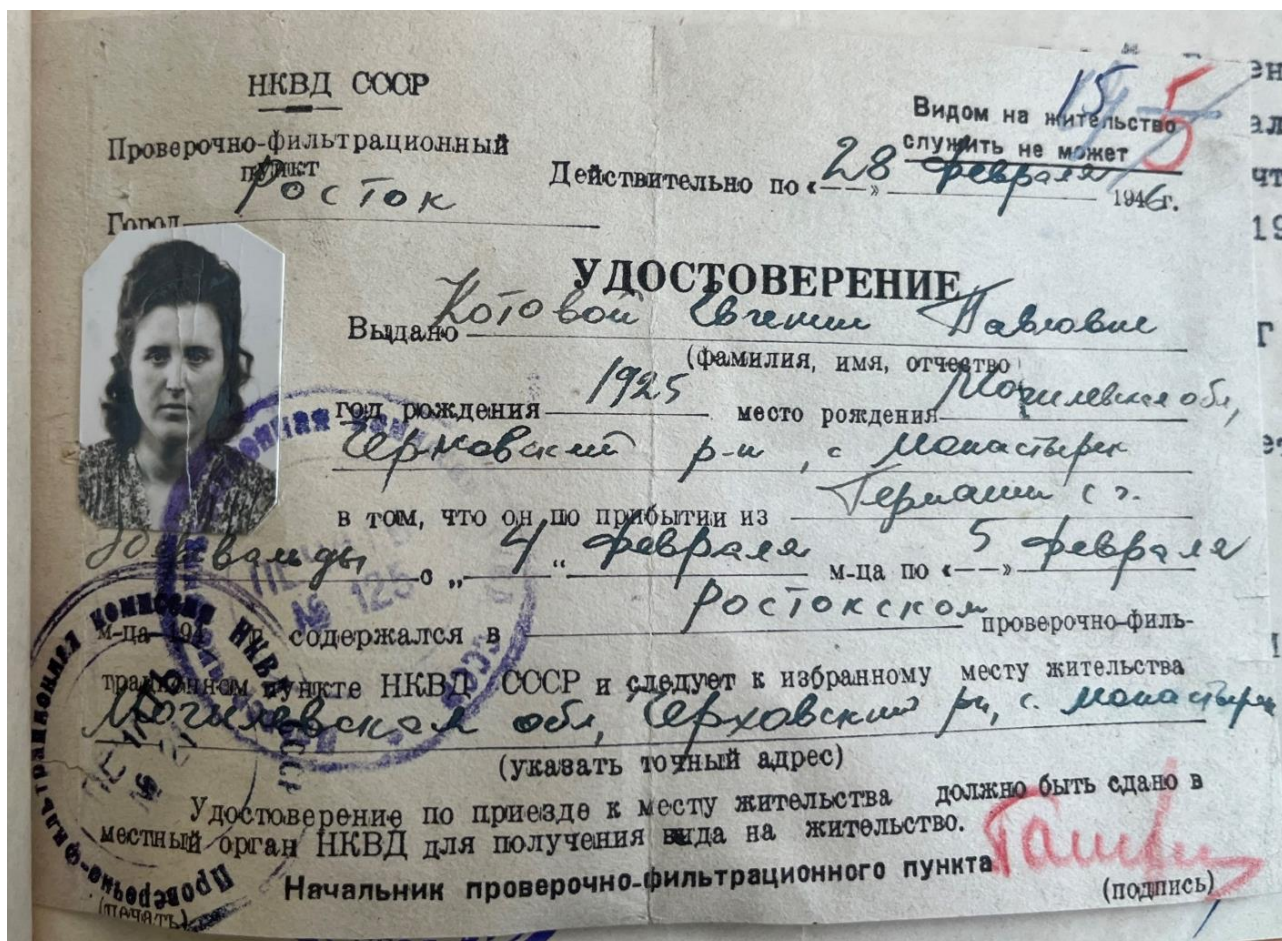 НКВД СССР
Проверочно-фильтрационный
пункт
Город Росток
15
5
Видом на жительство
служить не может
Действительно по «28» февраля 1946г.
УДОСТОВЕРЕНИЕ
Выдано Котовой Евгении Павловне
(фамилия, имя, отчество
год рождения 1925 место рождения Могилевская обл,
р-н, с Монастырек
в том, что он по прибытии из Германии с г.
с „4“ февраля м-ца по «5» февраля
м-ца 194 содержался в Ростокском проверочно-филь-
трационном пункте НКВД СССР и следует к избранному месту жительства
Могилевская обл, рн, с. Монастырек
(указать точный адрес)
Удостоверение по приезде к месту жительства должно быть сдано в
местный орган НКВД для получения вида на жительство.
Начальник проверочно-фильтрационного пункта
(подпись)
(печать)
Проверочно-фильтрационная комиссия НКВД СССР
№ 125